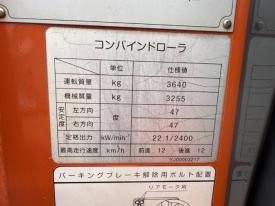 コンバインドローラ
単位 仕様値
運転質量 kg 3640
機械質量 kg 3255
安定度 左方向 度 47
右方向 47
定格出力 kW/min⁻¹ 22.1/2400
最高走行速度 km/h 前進 12 後進 12
パーキングブレーキ解除用ボルト配置
リアモータ用